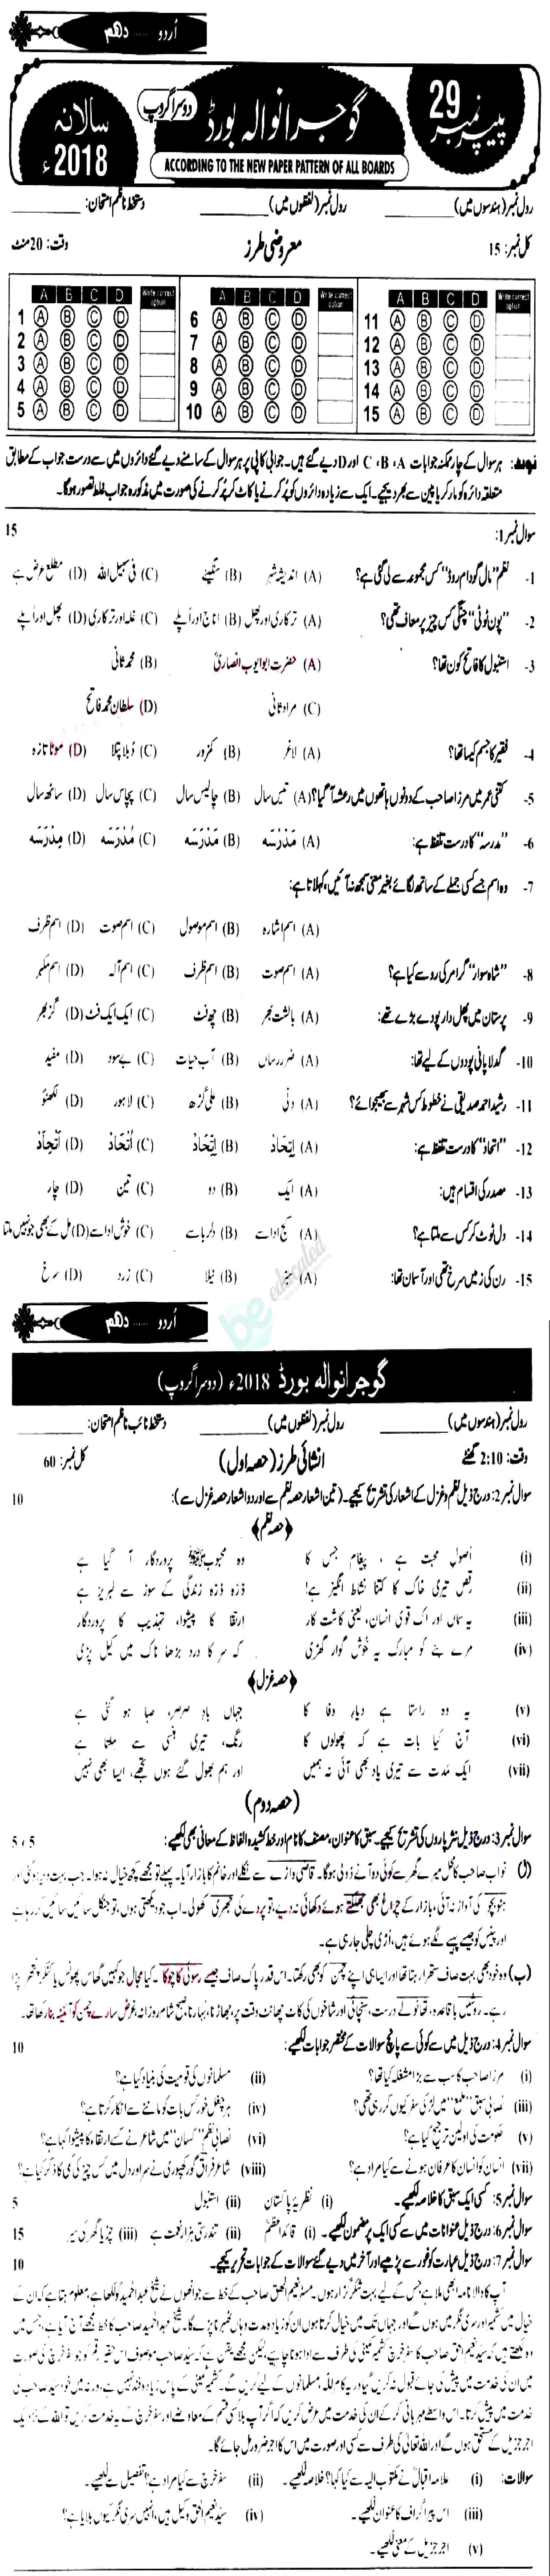 اُردو ...... دہم
پیپر نمبر 29
گوجرانوالہ بورڈ
دوسرا گروپ
سالانہ 2018ء
ACCORDING TO THE NEW PAPER PATTERN OF ALL BOARDS
رول نمبر (ہندسوں میں) ________ رول نمبر (لفظوں میں) ________ دستخط ناظم امتحان: ________
کل نمبر: 15 معروضی طرز وقت: 20 منٹ
A B C D Write correct option A B C D Write correct option A B C D Write correct option
1 A B C D 6 A B C D 11 A B C D
2 A B C D 7 A B C D 12 A B C D
3 A B C D 8 A B C D 13 A B C D
4 A B C D 9 A B C D 14 A B C D
5 A B C D 10 A B C D 15 A B C D
نوٹ: ہر سوال کے چار ممکنہ جوابات A ، B ، C اور D دیے گئے ہیں۔ جوابی کاپی پر ہر سوال کے سامنے دیے گئے دائروں میں سے درست جواب کے مطابق
متعلقہ دائرہ کو مارکر یا پین سے بھر دیجیے۔ ایک سے زیادہ دائروں کو پُر کرنے یا کاٹ کر پُر کرنے کی صورت میں مذکورہ جواب غلط تصور ہوگا۔
سوال نمبر 1: 15
1- نظم "مال گودام روڈ" کس مجموعہ سے لی گئی ہے؟ (A) اندیشہ شہر (B) سنگینے (C) فی سبیل اللہ (D) مطلع عرض ہے
2- "پون ٹوٹی" چنگی کس چیز پر معاف تھی؟ (A) ترکاری اور پھل (B) اناج اور اُپلے (C) غلہ اور ترکاری (D) پھل اور اُپلے
3- استنبول کا فاتح کون تھا؟ (A) حضرت ابو ایوب انصاریؓ (B) محمد ثانی
(C) مراد ثانی (D) سلطان محمد فاتح
4- فقیر کا جسم کیسا تھا؟ (A) لاغر (B) کمزور (C) دُبلا پتلا (D) موٹا تازہ
5- کتنی عمر میں مرزا صاحب کے دونوں ہاتھوں میں رعشہ آ گیا؟ (A) تیس سال (B) چالیس سال (C) پچاس سال (D) ساٹھ سال
6- "مدرسہ" کا درست تلفظ ہے: (A) مَدْرَسَہ (B) مَدْرَسَہ (C) مُدْرَسَہ (D) مِدْرَسَہ
7- وہ اسم جسے کسی جملے کے ساتھ لگائے بغیر معنی سمجھ نہ آئیں، کہلاتا ہے:
(A) اسم اشارہ (B) اسم موصول (C) اسم صوت (D) اسم ظرف
8- "شاہ سوار" گرامر کی رو سے کیا ہے؟ (A) اسم صوت (B) اسم ظرف (C) اسم آلہ (D) اسم مکبر
9- پرستان میں پھل دار پودے بڑے تھے: (A) بالشت بھر (B) چھ فٹ (C) ایک ایک فٹ (D) گز بھر
10- گدلا پانی پودوں کے لیے تھا: (A) ضرر رساں (B) آب حیات (C) بے سود (D) مفید
11- رشید احمد صدیقی نے خطوط کس شہر سے بھجوائے؟ (A) دلی (B) علی گڑھ (C) لاہور (D) لکھنؤ
12- "اتحاد" کا درست تلفظ ہے: (A) اِتِحَادْ (B) اِتِّحَادْ (C) اُتْحَادْ (D) اَتْحِادْ
13- مصدر کی اقسام ہیں: (A) ایک (B) دو (C) تین (D) چار
14- دل ٹوٹ کر کس سے ملتا ہے؟ (A) کج ادا سے (B) دلربا سے (C) خوش ادا سے (D) مل کے بھی جو نہیں ملتا
15- رن کی زمیں سرخ تھی اور آسمان تھا: (A) سبز (B) نیلا (C) زرد (D) سرخ
be educated
اُردو ...... دہم
گوجرانوالہ بورڈ 2018ء (دوسرا گروپ)
رول نمبر (ہندسوں میں) ________ رول نمبر (لفظوں میں) ________ دستخط نائب ناظم امتحان: ________
وقت: 2:10 گھنٹے انشائی طرز (حصہ اول) کل نمبر: 60
سوال نمبر 2: درج ذیل نظم و غزل کے اشعار کی تشریح کیجیے۔ (تین اشعار حصہ نظم سے اور دو اشعار حصہ غزل سے): 10
﴿حصہ نظم﴾
(i) اُصولِ محبت ہے ، پیغام جس کا وہ محبوبﷺ پروردگار آ گیا ہے
(ii) رقص تیری خاک کا کتنا نشاط انگیز ہے! ذرّہ ذرّہ زندگی کے سوز سے لبریز ہے
(iii) یہ سماں اور اک قوی انسان، یعنی کاشت کار ارتقا کا پیشوا، تہذیب کا پروردگار
(iv) مرے بنے کو مبارک یہ خوش گوار گھڑی کہ سر کا درد بڑھا ناک میں نکیل پڑی
﴿حصہ غزل﴾
(v) یہ وہ راستا ہے دیارِ وفا کا جہاں بادِ صرصر، صبا ہو گئی ہے
(vi) آج کیا بات ہے کہ پھولوں کا رنگ، تیری ہنسی سے ملتا ہے
(vii) ایک مدت سے تیری یاد بھی آئی نہ ہمیں اور ہم بھول گئے ہوں تجھے، ایسا بھی نہیں
(حصہ دوم)
سوال نمبر 3: درج ذیل نثر پاروں کی تشریح کیجیے۔ سبق کا عنوان، مصنف کا نام اور خط کشیدہ الفاظ کے معانی بھی لکھیے: 5 ، 5
(ا) نواب صاحب کا محل میرے گھر سے کوئی دو آنے ڈولی ہوگا۔ قاضی واڑے سے نکلے اور خانم کا بازار آیا۔ پہلے تو مجھے کچھ خیال نہ ہوا۔ جب بہت دیر ہوگئی اور
ہٹو بچو کی آواز نہ آئی، بازار کے چراغ بھی جھلکتے ہوئے دکھائی نہ دیے، تو پردے کی جھری کھولی۔ اب جو دیکھتی ہوں، تو جنگل سائیں سائیں کر رہا ہے
اور پینس کو جیسے پہیے لگے ہوئے ہیں، اُڑی چلی جا رہی ہے۔
(ب) وہ خود بھی بہت صاف ستھرا رہتا تھا اور ایسا ہی اپنے چمن کو بھی رکھتا۔ اس قدر پاک صاف جیسے رسوئی کا چوکا۔ کیا مجال جو کہیں گھاس پھونس یا کنکر پتھر پڑا
رہے۔ روشیں باقاعدہ، تھانولے درست، سنچائی اور شاخوں کی کاٹ چھانٹ وقت پر، جھاڑنا، بہارنا، صبح شام روزانہ، غرض سارے چمن کو آئینہ بنا رکھا تھا۔
سوال نمبر 4: درج ذیل میں سے کوئی سے پانچ سوالات کے مختصر جوابات لکھیے: 10
(i) مرزا صاحب کا سب سے بڑا مشغلہ کیا تھا؟ (ii) مسلمانوں کی قومیت کی بنیاد کیا ہے؟
(iii) نصابی سبق "ملمع" میں لڑکی سفر کیوں کر رہی تھی؟ (iv) ہر چغل خور کس بات کو ماننے سے انکار کرتا ہے؟
(v) حکومت کی اولین ترجیح کیا ہے؟ (vi) نصابی نظم "کسان" میں شاعر نے کسے ارتقا کا پیشوا کہا ہے؟
(vii) انسان کو انسان کا عرفان ہونے سے کیا مراد ہے؟ (viii) شاعر فراق گورکھپوری نے سر اور دل میں کس چیز کی کمی کا ذکر کیا ہے؟
سوال نمبر 5: کسی ایک سبق کا خلاصہ لکھیے۔ (i) نظریۂ پاکستان (ii) استنبول 5
سوال نمبر 6: درج ذیل عنوانات میں سے کسی ایک پر مضمون لکھیے۔ (i) قائداعظمؒ (ii) تندرستی ہزار نعمت ہے (iii) چڑیا گھر کی سیر 15
سوال نمبر 7: درج ذیل عبارت کو غور سے پڑھیے اور آخر میں دیے گئے سوالات کے جوابات تحریر کیجیے۔ 10
آپ کا والا نامہ ابھی ملا ہے جس کے لیے بہت شکر گزار ہوں۔ مسٹر نعیم الحق صاحب کے خط سے جو انھوں نے شیخ عبدالحمید کو لکھا ہے، معلوم ہوتا ہے کہ ان کے
خیال میں کشمیر اور سری نگر میں ہوں گے اور جہاں تک میں خیال کرتا ہوں ان کو زیادہ مدت وہاں ٹھہرنا پڑے گا۔ شیخ عبدالحمید صاحب کا خط مجھے آج آیا ہے، جس میں
وہ لکھتے ہیں کہ سید نعیم الحق صاحب کا سفر خرچ کشمیر کمیٹی کی طرف سے ادا ہونا چاہیے، لیکن مجھے یقین ہے کہ سید صاحب موصوف اس حقیر رقم کو جو سفر خرچ کی صورت
میں ان کی خدمت میں پیش کی جائے قبول نہ کریں گے اور یہ کام للہ مسلمانوں کے لیے کریں گے۔ کشمیر کمیٹی کے پاس زیادہ فنڈ نہیں ہے، ورنہ میں خود سید صاحب کی
خدمت میں پیش کرتا۔ اس واسطے مہربانی کر کے ان کی خدمت میں عرض کریں کہ اگر آپ بلا کسی قسم کے معاوضے اور سفر خرچ کے یہ خدمت کریں تو اللہ کے نزدیک
اجر جزیل کے مستحق ہوں گے اور اللہ تعالیٰ کی طرف سے کسی اور صورت میں اس کا اجر ضرور مل جائے گا۔
سوالات: (i) علامہ اقبالؒ نے مکتوب الیہ سے کیا کہا؟ خلاصہ لکھیے۔ (ii) سفر خرچ سے کیا مراد ہے؟ تفصیل سے لکھیے۔
(iii) اس پیراگراف کا عنوان لکھیے۔ (iv) سید نعیم الحق وکیل ہیں، انہیں سری نگر کیوں بلایا ہے؟
(v) اجر جزیل کے معنی لکھیے۔